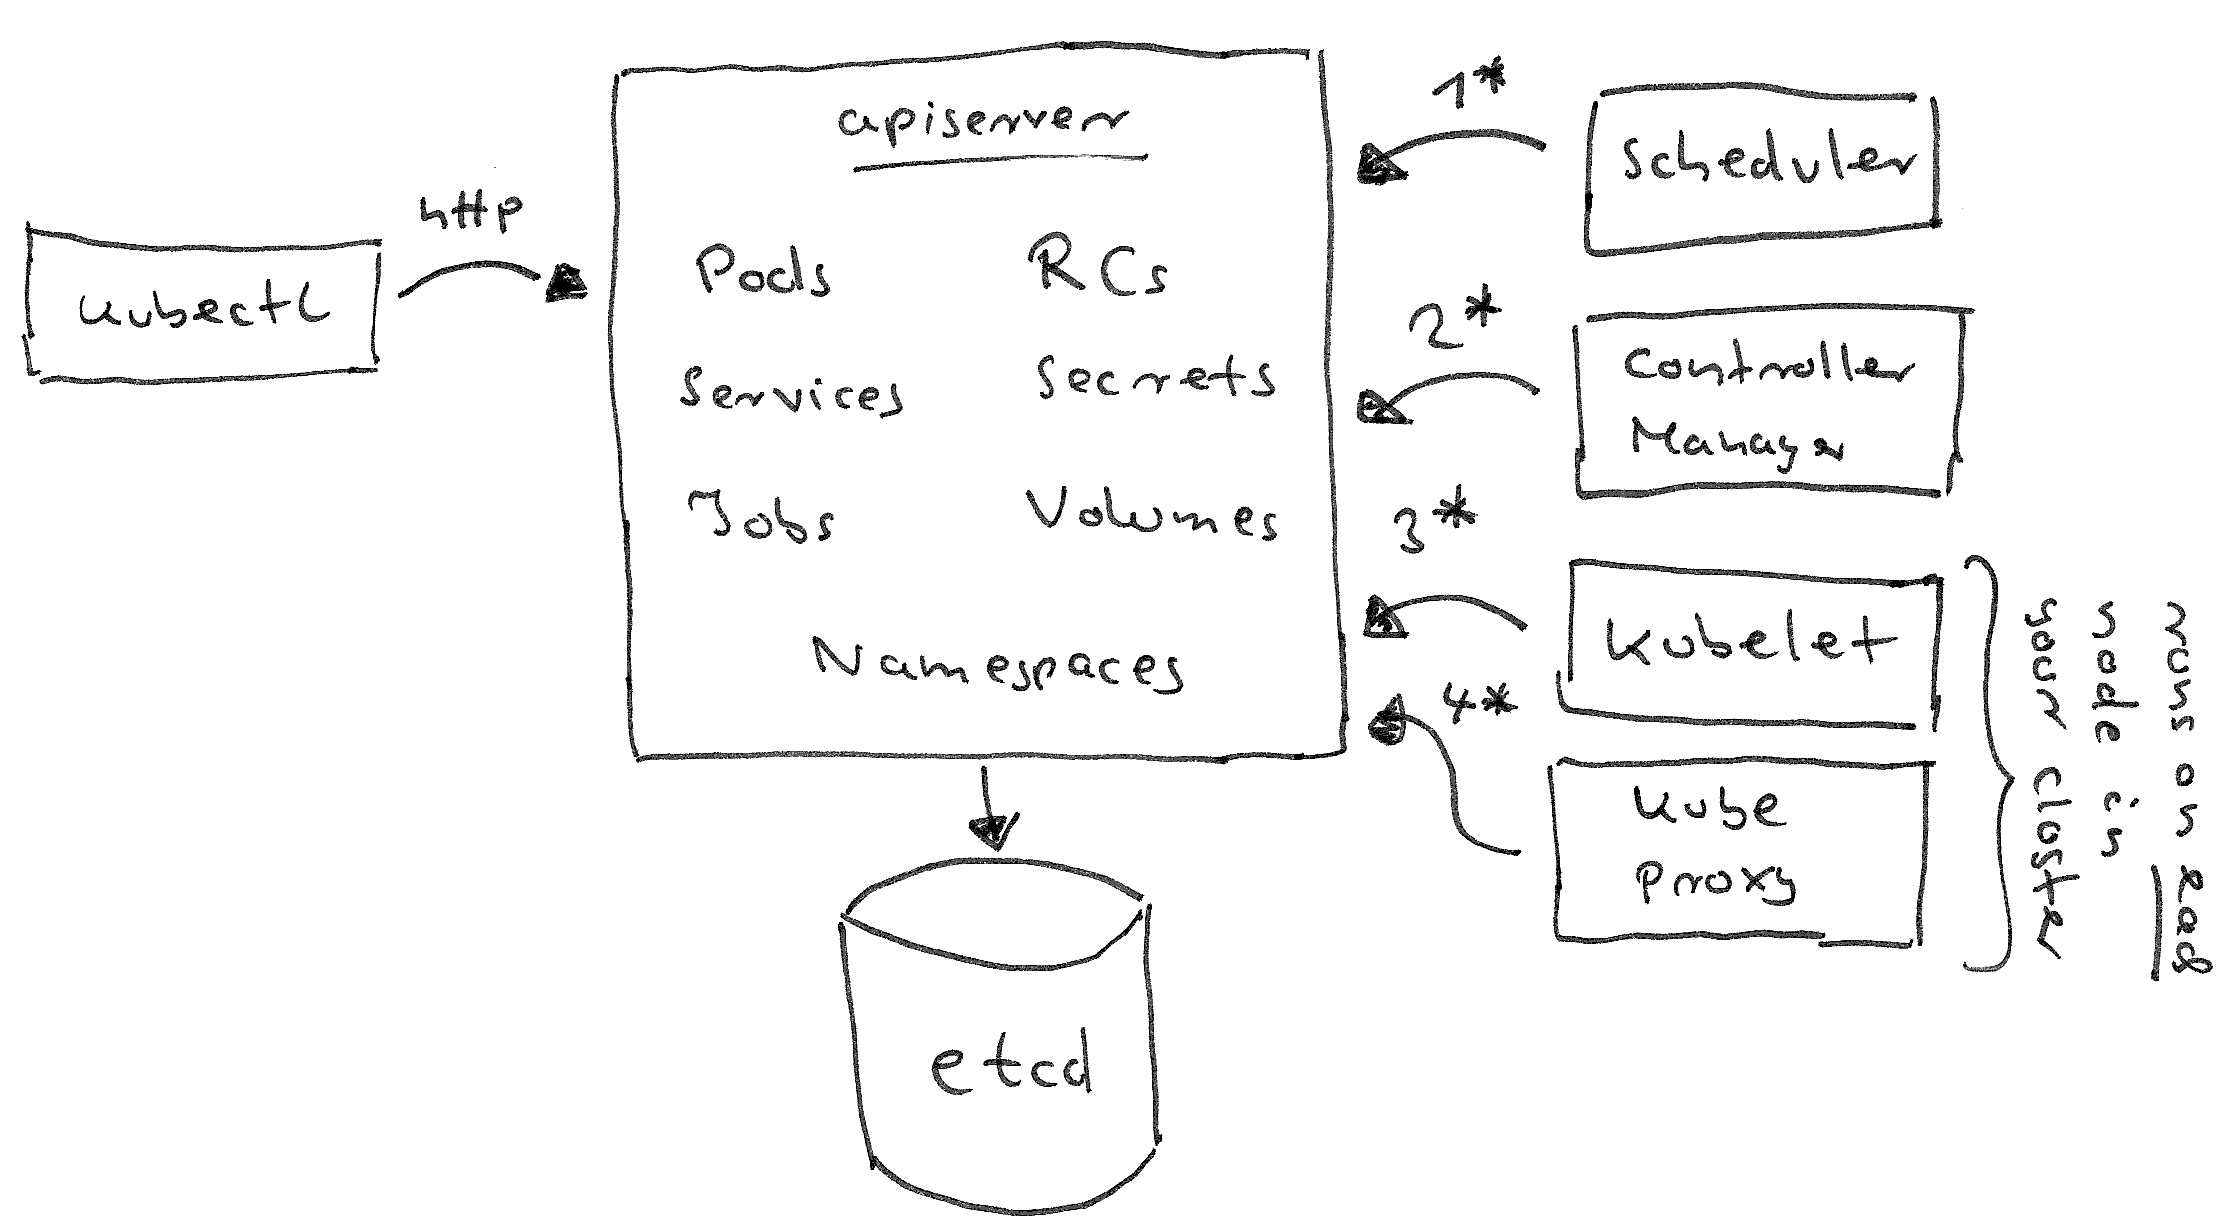 apiserver
Pods
RCs
Services
Secrets
Jobs
Volumes
Namespaces
kubectl
http
etcd
1*
Scheduler
2*
Controller
Manager
3*
Kubelet
4*
Kube
Proxy
runs on each
node in
your cluster